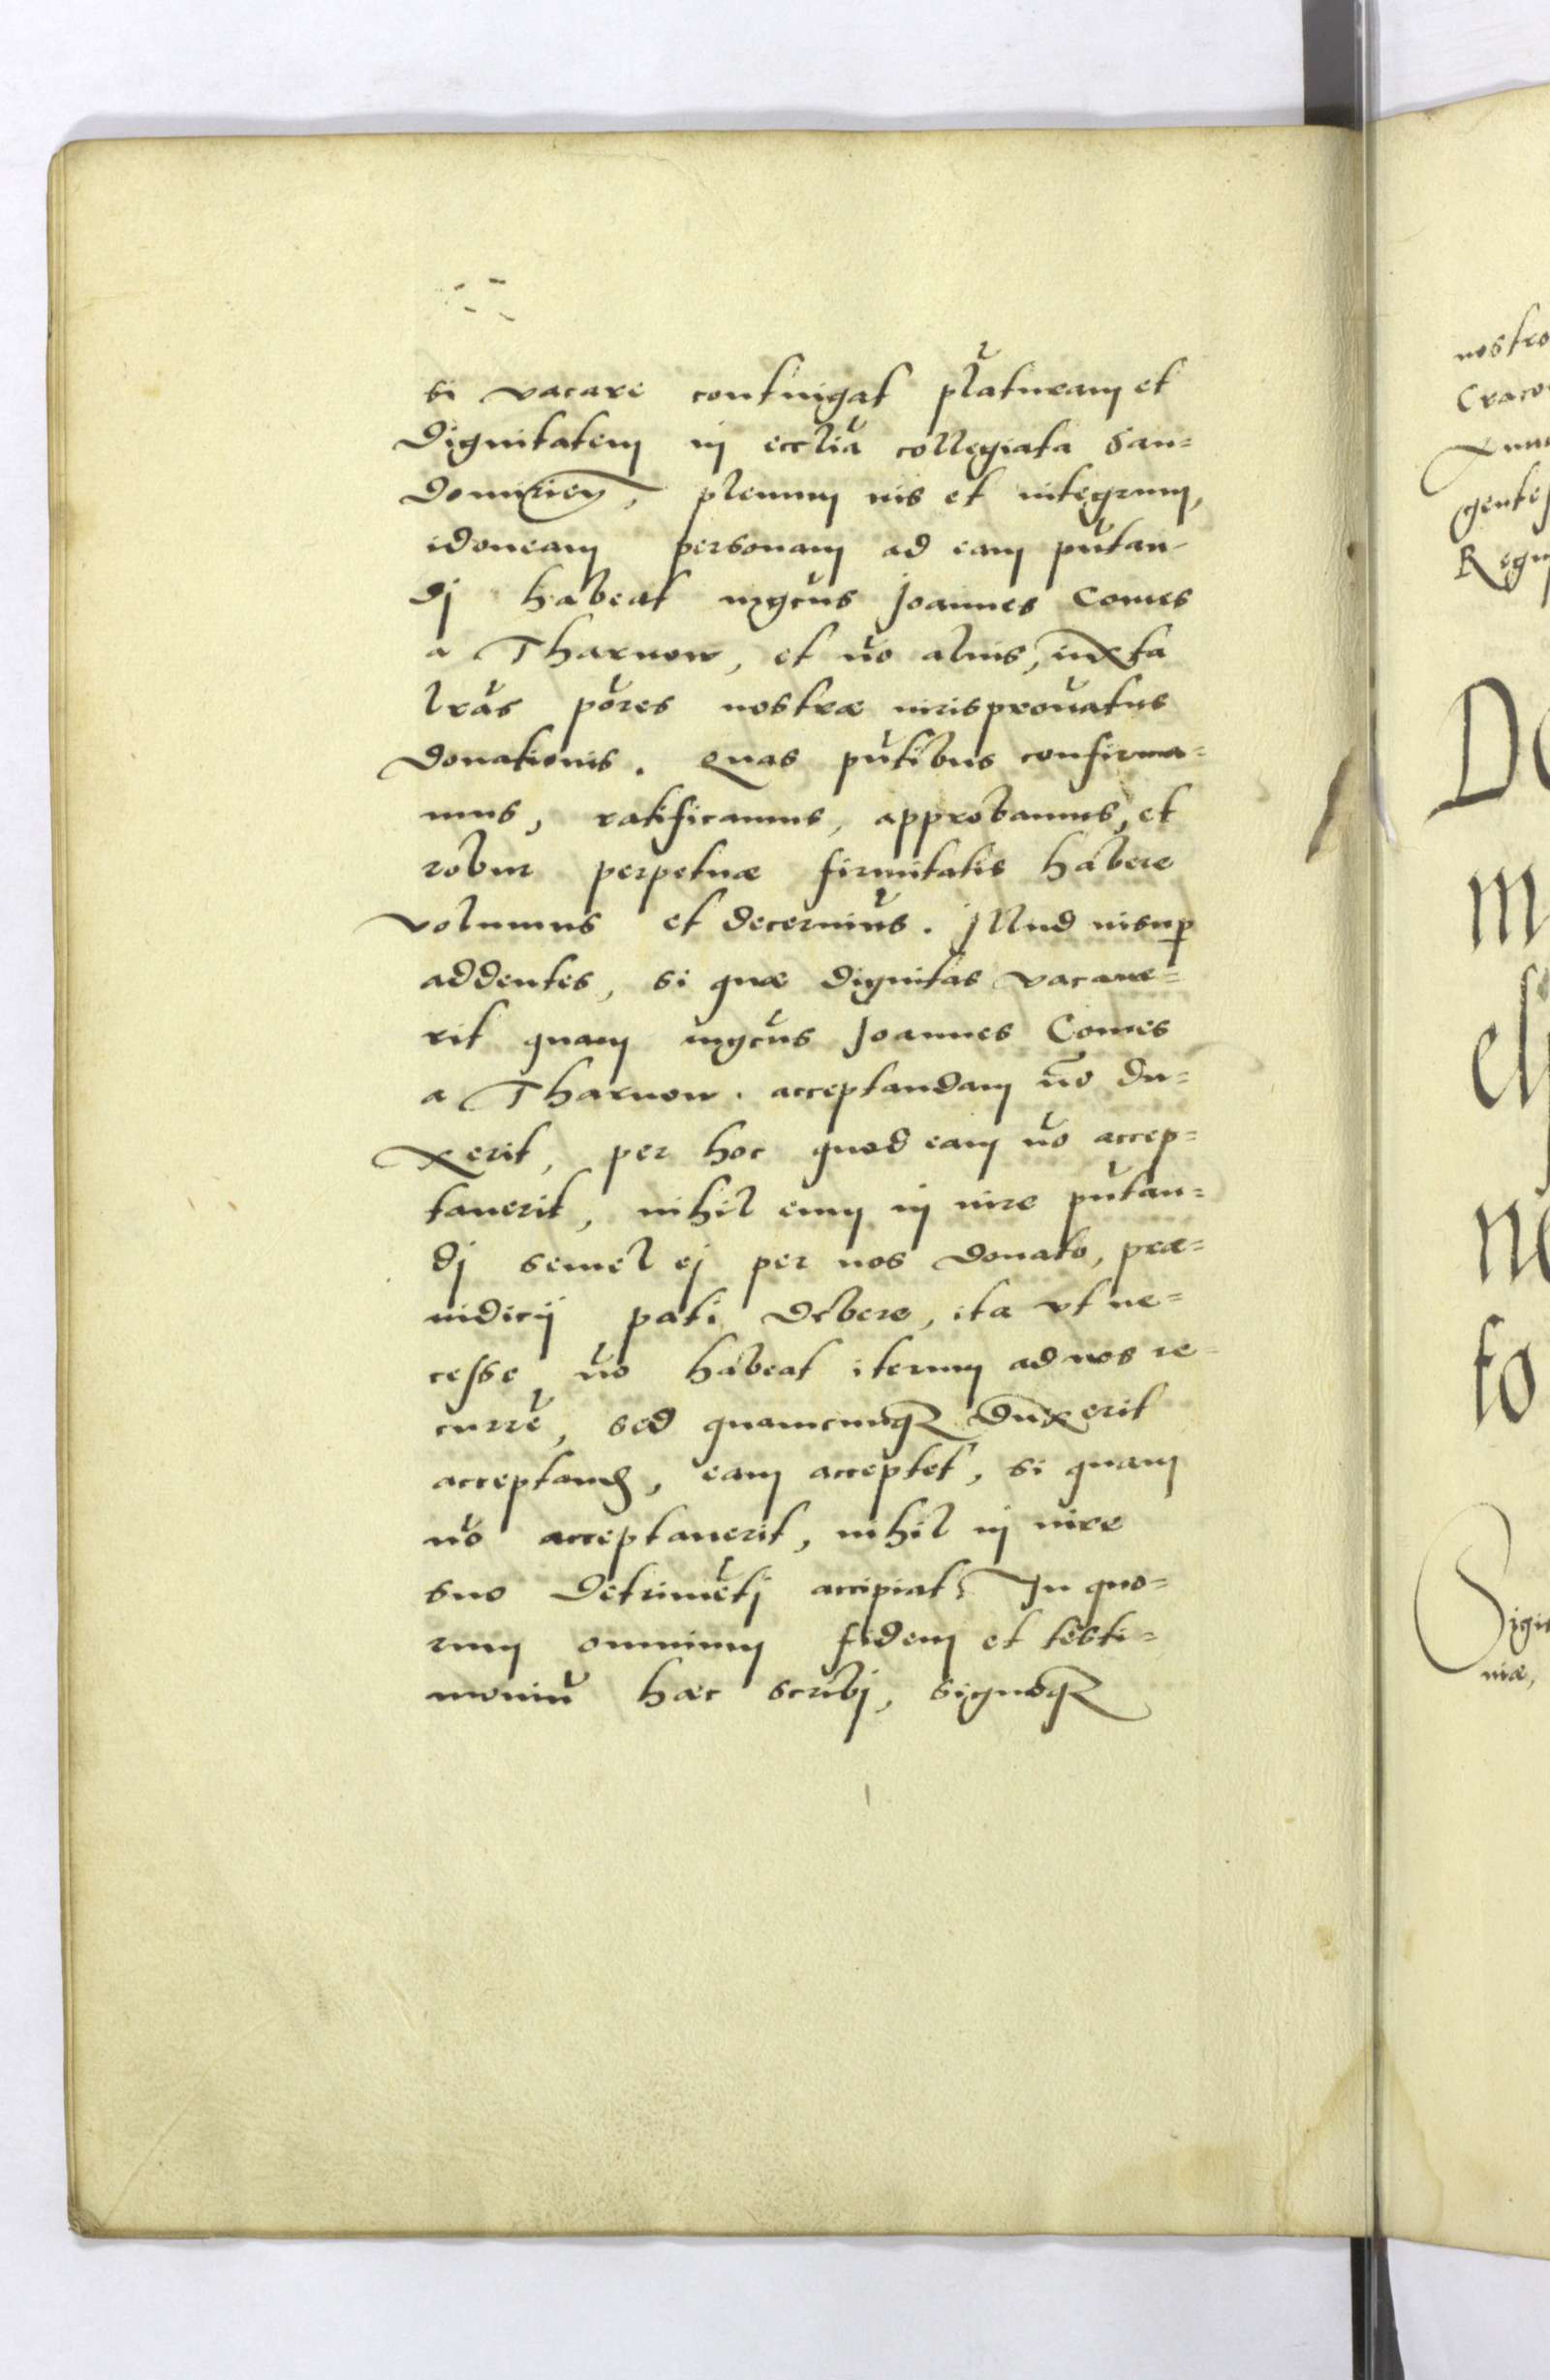 si vacare contingat p̆laturam et
dignitatem in ecclĭa collegiata San=
domirieñ, plenum ius et integrum,
idoneam personam ad eam pñtan-
dj habeat mgcus Joannes Comes
a Tharnow, et nŏ alius, iuxta
lrăs pŏres nostræ iurispronatus
donationis. Quas pñtibus confirma=
mus, ratificamus, approbamus, et
robur perpetuæ firmitatis habere
volumus et decernimŭs. Jllud insuꝑ
addentes, si quæ dignitas vacaue=
rit quam mgcus Joannes Comes
a Tharnow. acceptandam nō du=
xerit, per hoc quod eam nŏ accep=
tauerit, nihil eum in iure pñtan=
dj semel ej per nos donato, præ=
iudicij pati debere, ita vt ne=
cesse nŏ habeat iterum ad nos re=
currĕ, sed quamcunqȝ duxerit
acceptand, eam acceptet, si quam
nŏ acceptauerit, nihil in iure
suo detrimĕtj accipiat. In quo=
rum omnium fidem et testi=
moniŭ hæc scribj, signoqȝ
nostro
gentes
Do
to
niæ,